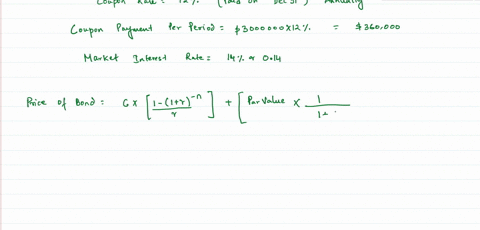 Coupon Rate = 12% (Paid on Dec 31) Annually
Coupon Payment Per Period = $3000000×12% = $360,000
Market Interest Rate = 14% or 0.14
Price of Bond = C × [ 1-(1+r)^-n / r ] + [ Par Value × 1 / 1+